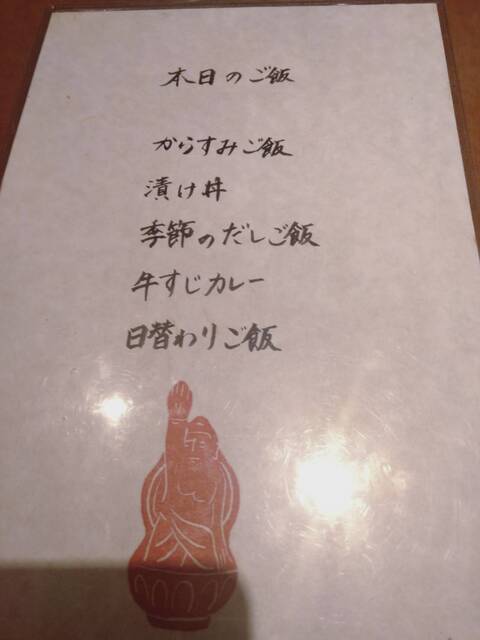 本日のご飯
からすみご飯
漬け丼
季節のだしご飯
牛すじカレー
日替わりご飯